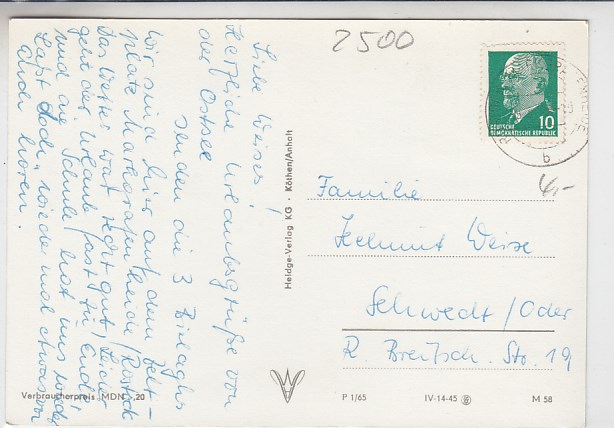 2500
Liebe Weises!
Herzliche Urlaubsgrüße von
der Ostsee
senden die 3 Biolaghs
Wir sind hier auf dem Zelt-
platz Markgrafenheide/Rostock
Das Wetter war recht gut, leider
geht der Urlaub fast zu Ende
und die Schule hat uns wieder
Laßt doch wieder mal etwas von
Euch hören!
Verbraucherpreis MDN ,20
Heldge-Verlag KG · Köthen/Anhalt
10
DEUTSCHE
DEMOKRATISCHE REPUBLIK
b
6,-
Familie
Helmut Weise
Schwedt/Oder
R. Breitsch. Str. 19
P 1/65 IV-14-45 M 58